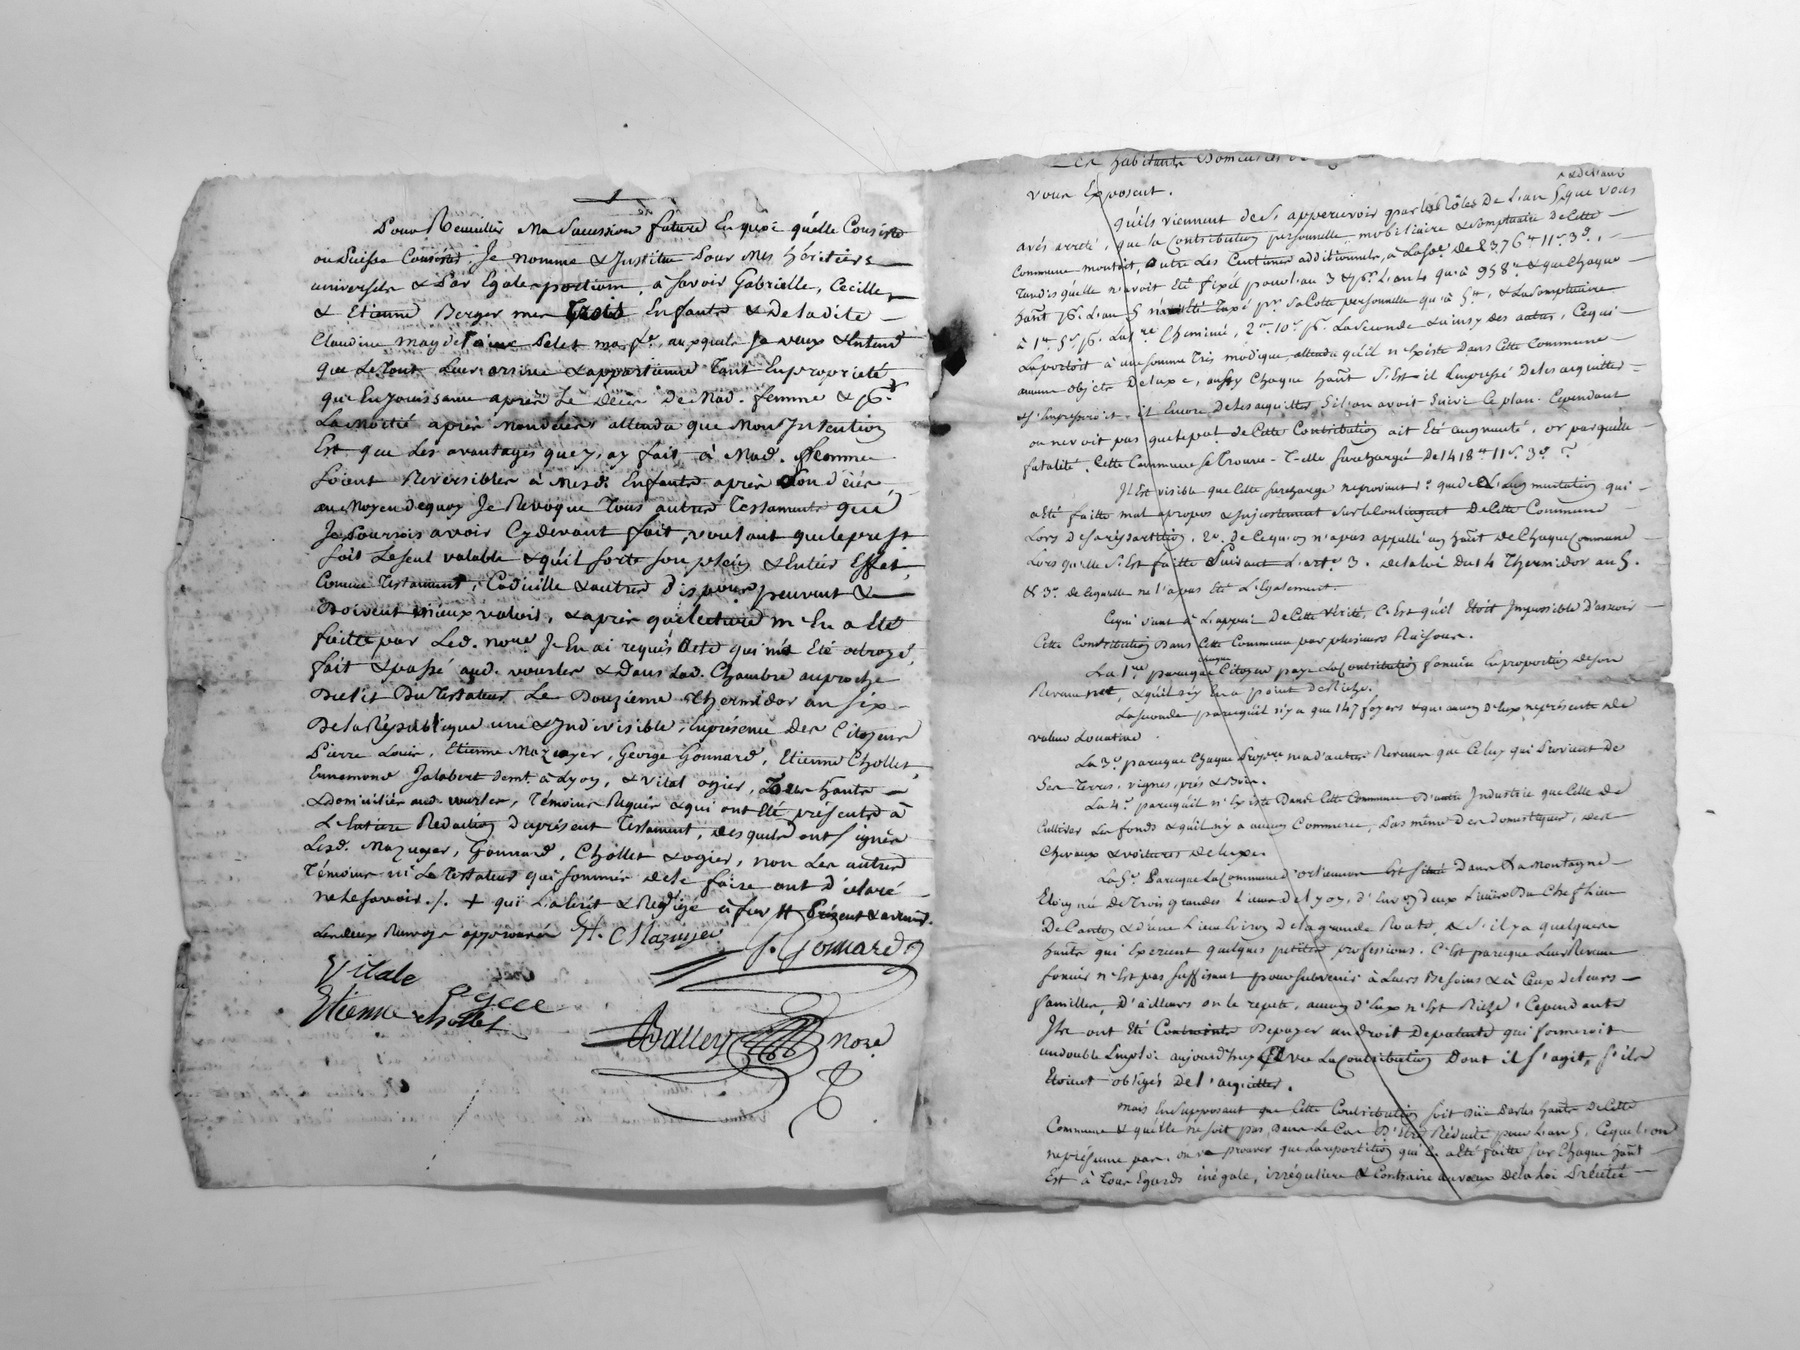 Pour Recueillir Ma Succession future En quoi qu'elle Consiste
ou Puisse Consister, Je nomme & Institue Pour Mes héritiers
universels & Par Egale portion, à Savoir Gabrielle, Cecille,
& Etienne Berger mes Trois Enfants & De ladite
Claudine ma femme, auxquels Je veux & Entend
que Le tout Leur arrive & appartienne Tant En propriété
qu'En Jouissance après Le Décès De Mad. femme & pr.
La Moitié après mon décès attendu que Mon Intention
Est que Les avantages que j'y ay fait à Mad. femme
Soient Reversibles à Mesd. Enfants après Son décès,
au Moyen de quoy Je Révoque Tous autres Testaments que
Je Pourrois avoir Cy devant fait, voulant que le prest
soit Le seul valable & qu'il sorte son plein & Entier Effet,
Comme Testament, Codicille & autres dispons peuvent &
Doivent mieux valoir, & après que lecture m'En a été
faitte par Led. nore J'En ai requis Acte qui m'a Eté octroyé,
fait & passé aud. vourles & Dans Lad. Chambre auproche
Du lit Du Testateur Le Douzieme Thermidor an six
De la République une & Indivisible, En présence Des Citoyens
Pierre Louis, Etienne Mazuyer, George Gonnard, Etienne Chollet,
Ennemond Jalabert demt. à Lyon, & Vital ogier, Tous hants
& domiciliés aud. vourles, Témoins Requis & qui ont Eté présents à
L'Entiere Rédaction du présent Testament, desquels ont signés
Lesd. Mazuyer, Gonnard, Chollet & ogier, non Les autres
Témoins ni Le Testateur qui sommés de le faire ont déclaré
ne le savoir ./. + qui L'a Ecrit & Redigé à fur H Présent & acceptant.
Les deux Renvois approuvés Et. Mazuyer
G. Gonnard
Vitale
Etienne chollet
nore
Les habitants Domiciliés
vous Exposent.
& de l'an 6
qu'ils viennent de s'appercevoir par les Rôles De L'an 5 que vous
avés arreté, que la Contribution personnelle, mobiliaire & somptuaire de Cette
Commune montoit, outre Les Centimes additionnels, à La some De 2376tt 11s 3d,
Tandis qu'elle n'avoit Eté fixée pour l'an 3 & pr. L'an 4 qu'à 958tt & que Chaque
hant pr. L'an 5 n'a été Taxé pr. Sa Cotte personnelle qu'à 5tt, & La Somptuaire
à 1tt 5s pr. La 1re Cheminée, 2tt 10s pr. La Seconde & ainsy des autres, Ce qui
La portoit à une somme Très modique, attendu qu'il n'Existe dans Cette Commune
aucuns objets De luxe, aussy Chaque hant S'Est-il Empressé De les acquitter
& s'Empresseroit-il Encore De les acquitter Si L'on avoit Suivi Ce plan. Cependant
on ne voit pas que le pot de Cette Contribution ait Eté augmenté, or par quelle
fatalité, Cette Commune Se Trouve-T-elle Surchargée De 1418tt 11s 3d ?
Il Est visible que Cette Surcharge ne provient 1o que de
a Eté faitte mal apropos & Injustement Sur le Contingent De Cette Commune
Lors De Sa répartition, 2o. de Ce qu'on n'a pas appellé un hant de Chaque Commune
Lors qu'elle S'Est faitte Suivant L'arte 3. de la loi du 14 Thermidor an 5.
& 3o. de Ce qu'elle ne l'a pas Eté Légalement.
Ce qui vient à L'appui De Cette vérité, C'Est qu'il Etoit Impossible D'asseoir
Cette Contribution Dans Cette Commune par plusieurs Raisons.
La 1re parceque chaque Citoyen paye La Contribution fonciere En proportion de son
Revenu net, & qu'il n'y En a point de Riche.
La seconde parcequ'il n'y a que 147 foyers & qu'aucun d'Eux ne présente De
valeur Locative.
La 3e parceque Chaque Propre n'a d'autres Revenus que Celuy qui Provient De
Ses Terres, vignes, prés & Bois.
La 4e parcequ'il n'Existe Dans Cette Commune D'autre Industrie que Celle De
Cultiver Les fonds & qu'il n'y a aucun Commerce, Pas même Des domestiques, Des
Chevaux & voitures De luxe.
La 5e Parceque La Commune d'orlienas Est située Dans La Montagne
Eloignée De Trois grandes Lieues de Lyon, d'Environ deux Lieues Du Chef lieu
De Canton & d'une Lieue Environ de la grande Route, & S'il y a quelques
hants qui Exercent quelques petites professions, C'Est parceque Leur Revenu
foncier n'Est pas suffisant pour Subvenir à Leurs Besoins & à Ceux de leurs
familles, D'ailleurs on le répete, aucun d'Eux n'Est Riche, Cependant
Ils ont Eté Contraints De payer un droit De patente qui formeroit
un double Emploi aujourd'huy avec La Contribution Dont il s'agit, s'ils
Etoient obligés De l'acquitter.
Mais En Supposant que Cette Contribution soit Due Par les hants De Cette
Commune & qu'elle ne soit pas dans Le Cas D'Etre Réduite pour L'an 5, Ce que L'on
ne présume pas, on va prouver que La répartition qui En a Eté faitte Sur Chaque hant
Est à Tous Egards inégale, irréguliere & Contraire au vœux De la Loi Précitée